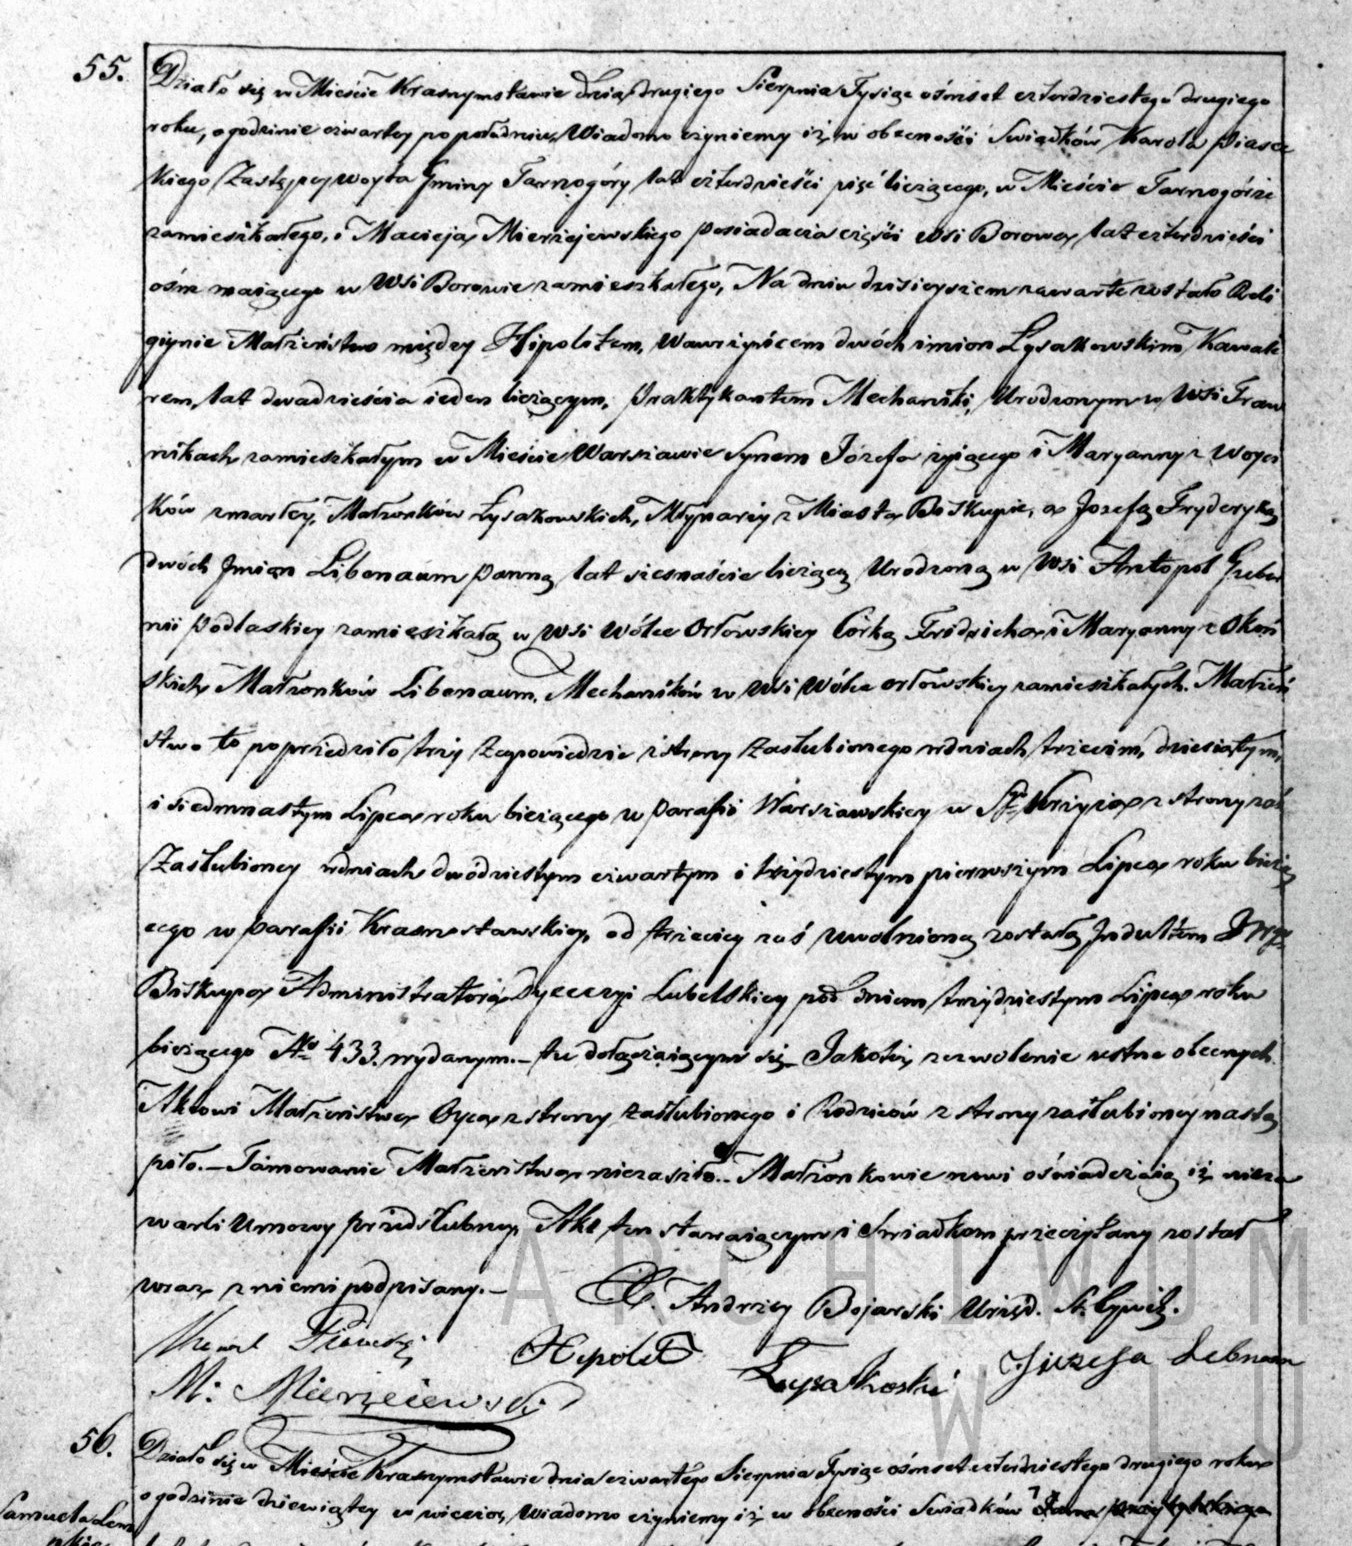 55.
Działo się w Mieście Krasnymstawie dnia drugiego Sierpnia Tysiąc ośmset czterdziestego drugiego
roku, o godzinie czwartey po południu, Wiadomo czyniemy iż w obecności Świadków Karola Piasec
kiego Zastępcy woyta Gminy Tarnogóry lat czterdzieści pięć liczącego, w Mieście Tarnogórze
zamieszkałego, i Macieja Mierzejewskiego posiadacza części wsi Borowa lat czterdzieści
ośm maiącego w Wsi Borowie zamieszkałego, Na dniu dzisieyszem zawarte zostało Reli
giynie Małżeństwo między Hipolitem, Wawrzyńcem dwóch imion Łysakowskim Kawale
rem, lat dwadzieścia ieden liczącym, Praktykantem Mechaniki, Urodzonym w Wsi Traw
nikach zamieszkałym w Mieście Warszawie Synem Józefa żyiącego i Maryanny z Woyci
ków zmarłey, Małżonków Łysakowskich, Młynarzy z Miasta Biskupie, a Józefą Fryderyką
dwóch Jmion Libenaum Panną lat siesnaście liczącą Urodzoną w Wsi Antopol Guber
nii Podlaskiey zamieszkałą w Wsi Wólce Orłowskiey Córką Fridricha i Maryanny z Okoń
skich Małżonków Libenaum, Mechaników w Wsi Wólce orłowskiey zamieszkałych. Małżeń
stwo to poprzedziło trzy Zapowiedzie z strony Zaślubionego w dniach trzecim, dziesiątym,
i siedmnastym Lipca roku bieżącego w Parafii Warszawskiey w Sgo Krzyża z strony zaś
Zaślubioney w dniach dwódziestym czwartym i trzydziestym pierwszym Lipca roku bieżą
cego w Parafii Krasnostawskiey, od trzeciey zaś uwolnioną została Jndultem
Biskupa Administratora Dyecezyi Lubelskiey pod dniem trzydziestym Lipca roku
bieżącego No 433. wydanym.- tu dołączaiącym się Jakoteż zezwolenie ustne obecnych
Aktowi Małżeństwa Oyca z strony zaślubionego i Rodziców z strony zaślubioney nastą
piło.- Tamowanie Małżeństwa niezaszło.- Małżonkowie nowi oświadczaią iż nieza
warli Umowy przedślubney, Akt ten stawaiącym i Świadkom przeczytany został
wraz z niemi podpisany.-
X. Andrzey Bojarski Urzęd. St. Cywil.
Karol Piasecki
Hipolit Łysakoski
Juzefa Lebnaum
M: Mierzeiewski
56.
Działo się w Mieście Krasnymstawie dnia czwartego Sierpnia Tysiąc ośmset czterdziestego drugiego roku
o godzinie dziewiątey w wieczor, Wiadomo czyniemy iż w obecności Świadków
Samuela
ARCHIWUM
W LU